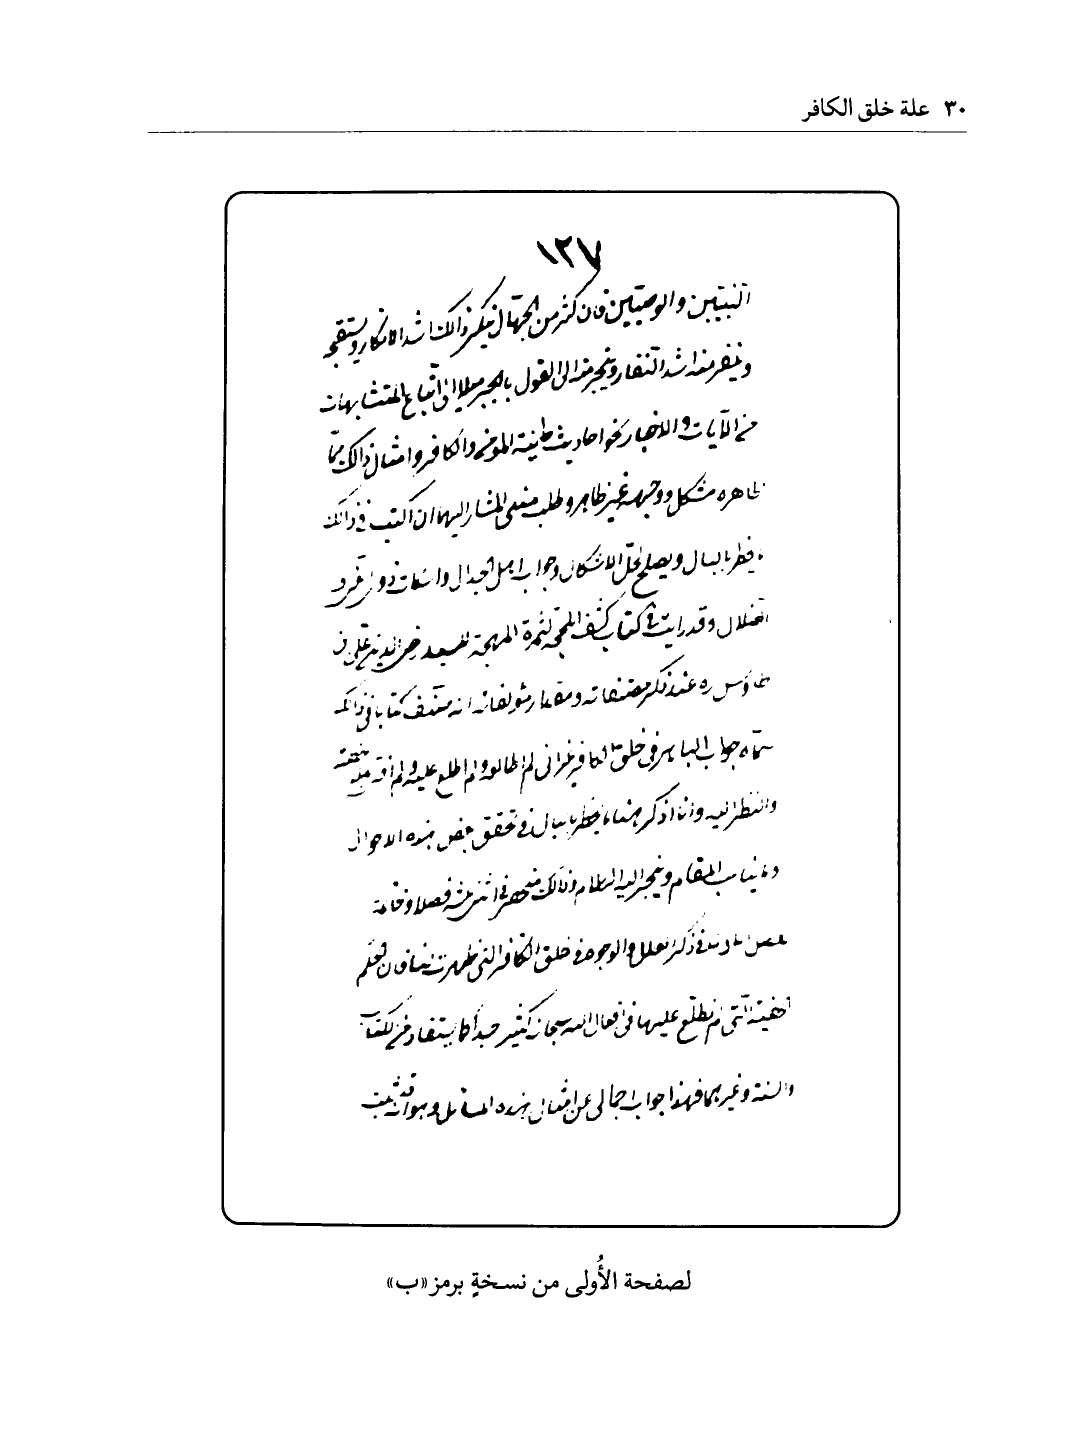 ٣٠ علة خلق الكافر
١٢٧
النبيين والوصيين فان كثيرمن الجهال ينكر ذالك اشد الانكار ويستقبحه
وينفرمنه اشد التنفار وينجرمنه الى القول بالجبر ميلا الى اتباع المتشابهات
من الآيات والاخبار نحو احاديث طينة المؤمن والكافر وامثال ذالك مما
ظاهره مشكل ووجهه غير ظاهر وطلب منى المشار اليه ان اكتب فى ذالك
ما يخطر بالبال ويصلح لحل الاشكال وجواب اهل الجدال واسكات ذوى
الضلال وقد رايت فى كتاب كشف المحجة لثمرة المهجة للسيد رضى الدين على بن
طاوس ره عند ذكر مصنفاته ومقدار مؤلفاته انه صنف كتابا فى ذالك
سماه جواب الباهر فى خلق الكافر غير انى لم اطالعه ولم اطلع عليه ولم اقف
والنظر اليه وانا اذكر هنا ما يخطر بالبال فى تحقق بعض هذه الاحوال
وما يناسب المقام وينجر اليه الكلام وذالك منحصر فى اثنى عشر فصلا وخاتمة
فصل فى ذكر العلل والوجوه فى خلق الكافر التى ظهرت لنا فان الحكم
الخفية التى لم نطلع عليها فى افعال الله سبحانه كثير جدا كما يستفاد من الكتاب
والسنة وغيرهما فهذا جواب اجمالى عن امثال هذه المسائل وهو انه قد ثبت
لصفحة الأُولى من نسخةٍ برمز «ب»